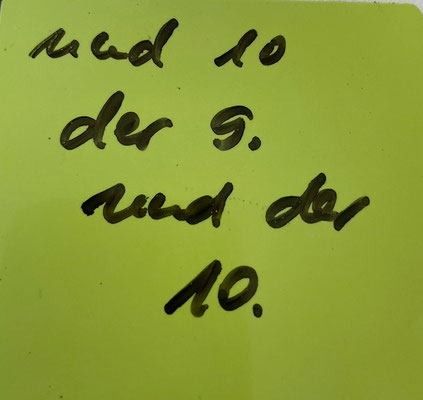 und 10
der 9.
und der
10.